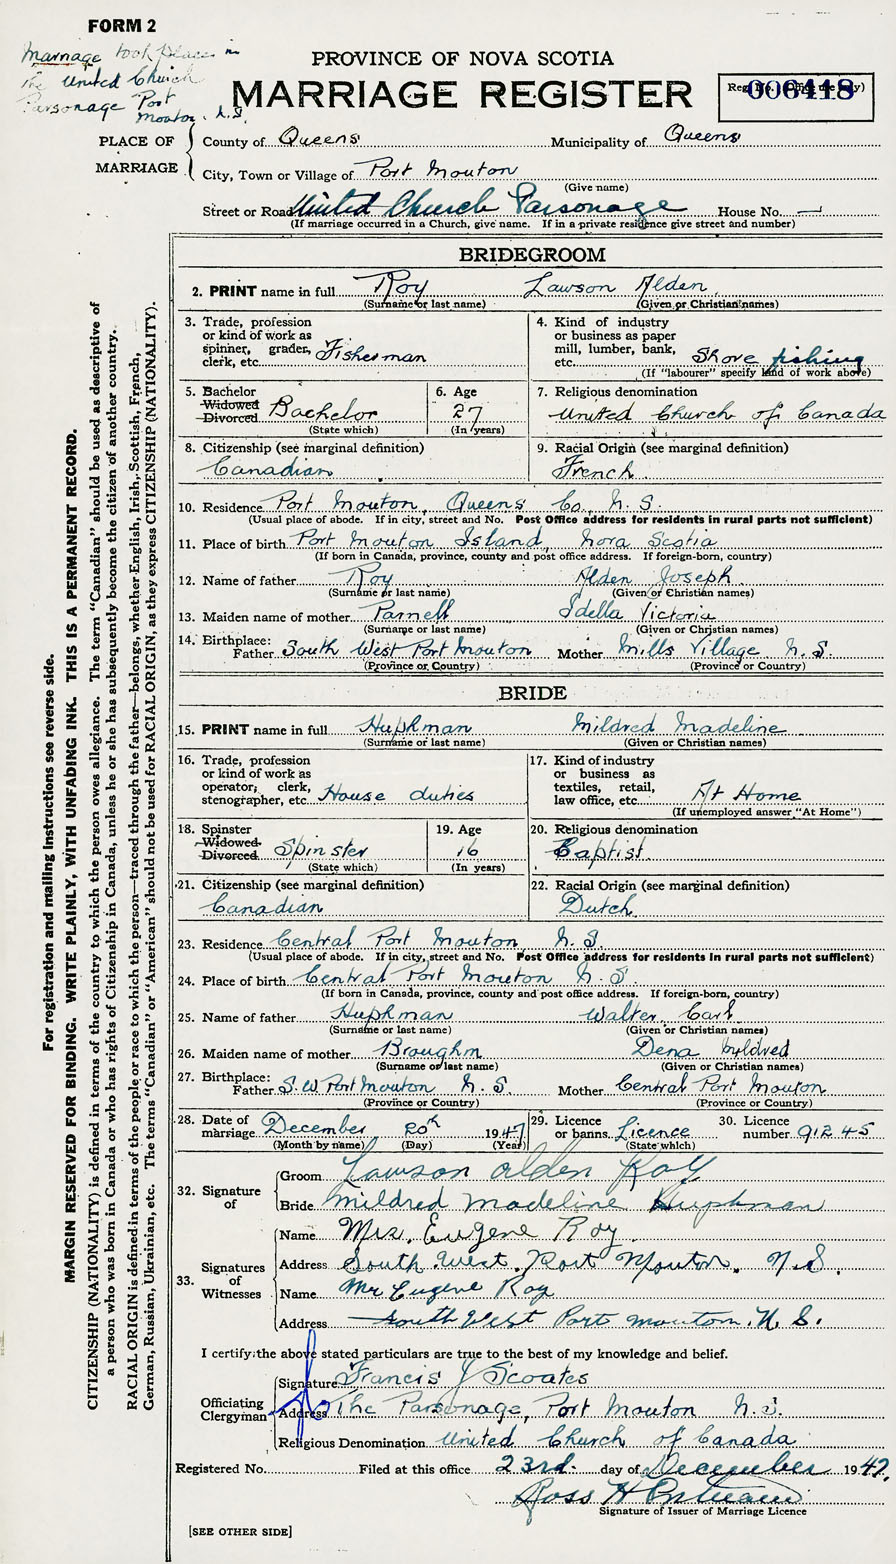 FORM 2
Marriage took place in
the United Church
Parsonage Port
Mouton. N.S.
PROVINCE OF NOVA SCOTIA
MARRIAGE REGISTER
006418
PLACE OF MARRIAGE
County of Queens Municipality of Queens
City, Town or Village of Port Mouton
(Give name)
Street or Road United Church Parsonage House No. —
(If marriage occurred in a Church, give name. If in a private residence give street and number)
BRIDEGROOM
2. PRINT name in full Roy Lawson Alden
(Surname or last name) (Given or Christian names)
3. Trade, profession 4. Kind of industry
or kind of work as or business as paper
spinner, grader, mill, lumber, bank,
clerk, etc. Fisherman etc. Shore fishing
(If "labourer" specify kind of work above)
5. Bachelor 6. Age 7. Religious denomination
Widowed
Divorced Bachelor 27 United Church of Canada
(State which) (In years)
8. Citizenship (see marginal definition) 9. Racial Origin (see marginal definition)
Canadian French
10. Residence Port Mouton, Queens Co., N.S.
(Usual place of abode. If in city, street and No. Post Office address for residents in rural parts not sufficient)
11. Place of birth Port Mouton Island, Nova Scotia
(If born in Canada, province, county and post office address. If foreign-born, country)
12. Name of father Roy Alden Joseph
(Surname or last name) (Given or Christian names)
13. Maiden name of mother Parnell Idella Victoria
(Surname or last name) (Given or Christian names)
14. Birthplace:
Father South West Port Mouton Mother Mills Village N.S.
(Province or Country) (Province or Country)
BRIDE
15. PRINT name in full Huphman Mildred Madeline
(Surname or last name) (Given or Christian names)
16. Trade, profession 17. Kind of industry
or kind of work as or business as
operator, clerk, textiles, retail,
stenographer, etc. House duties law office, etc. At Home
(If unemployed answer "At Home")
18. Spinster 19. Age 20. Religious denomination
Widowed
Divorced Spinster 16 Baptist
(State which) (In years)
21. Citizenship (see marginal definition) 22. Racial Origin (see marginal definition)
Canadian Dutch
23. Residence Central Port Mouton, N.S.
(Usual place of abode. If in city, street and No. Post Office address for residents in rural parts not sufficient)
24. Place of birth Central Port Mouton N.S.
(If born in Canada, province, county and post office address. If foreign-born, country)
25. Name of father Huphman Walter Carl
(Surname or last name) (Given or Christian names)
26. Maiden name of mother Broughm Dena Myldred
(Surname or last name) (Given or Christian names)
27. Birthplace:
Father S.W. Port Mouton N.S. Mother Central Port Mouton
(Province or Country) (Province or Country)
28. Date of marriage December 20th 1947 29. Licence or banns Licence 30. Licence number 91245
(Month by name) (Day) (Year) (State which)
32. Signature of
Groom Lawson Alden Roy
Bride Mildred Madeline Huphman
33. Signatures of Witnesses
Name Mrs. Eugene Roy.
Address South West. Port Mouton. N.S.
Name Mr Eugene Roy
Address South West Port Mouton. N.S.
I certify the above stated particulars are true to the best of my knowledge and belief.
Officiating Clergyman
Signature Francis J Scoates
Address The Parsonage, Port Mouton N.S.
Religious Denomination United Church of Canada
Registered No. Filed at this office 23rd. day of December 1947.
Ross H
Signature of Issuer of Marriage Licence
[SEE OTHER SIDE]
For registration and mailing instructions see reverse side.
MARGIN RESERVED FOR BINDING. WRITE PLAINLY, WITH UNFADING INK. THIS IS A PERMANENT RECORD.
CITIZENSHIP (NATIONALITY) is defined in terms of the country to which the person owes allegiance. The term "Canadian" should be used as descriptive of
a person who was born in Canada or who has rights of Citizenship in Canada, unless he or she has subsequently become the citizen of another country.
RACIAL ORIGIN is defined in terms of the people or race to which the person—traced through the father—belongs, whether English, Irish, Scottish, French,
German, Russian, Ukrainian, etc. The terms "Canadian" or "American" should not be used for RACIAL ORIGIN, as they express CITIZENSHIP (NATIONALITY).